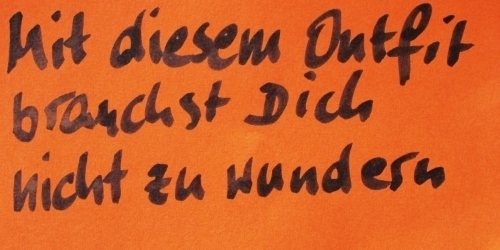 Mit diesem Outfit
brauchst Dich
nicht zu wundern